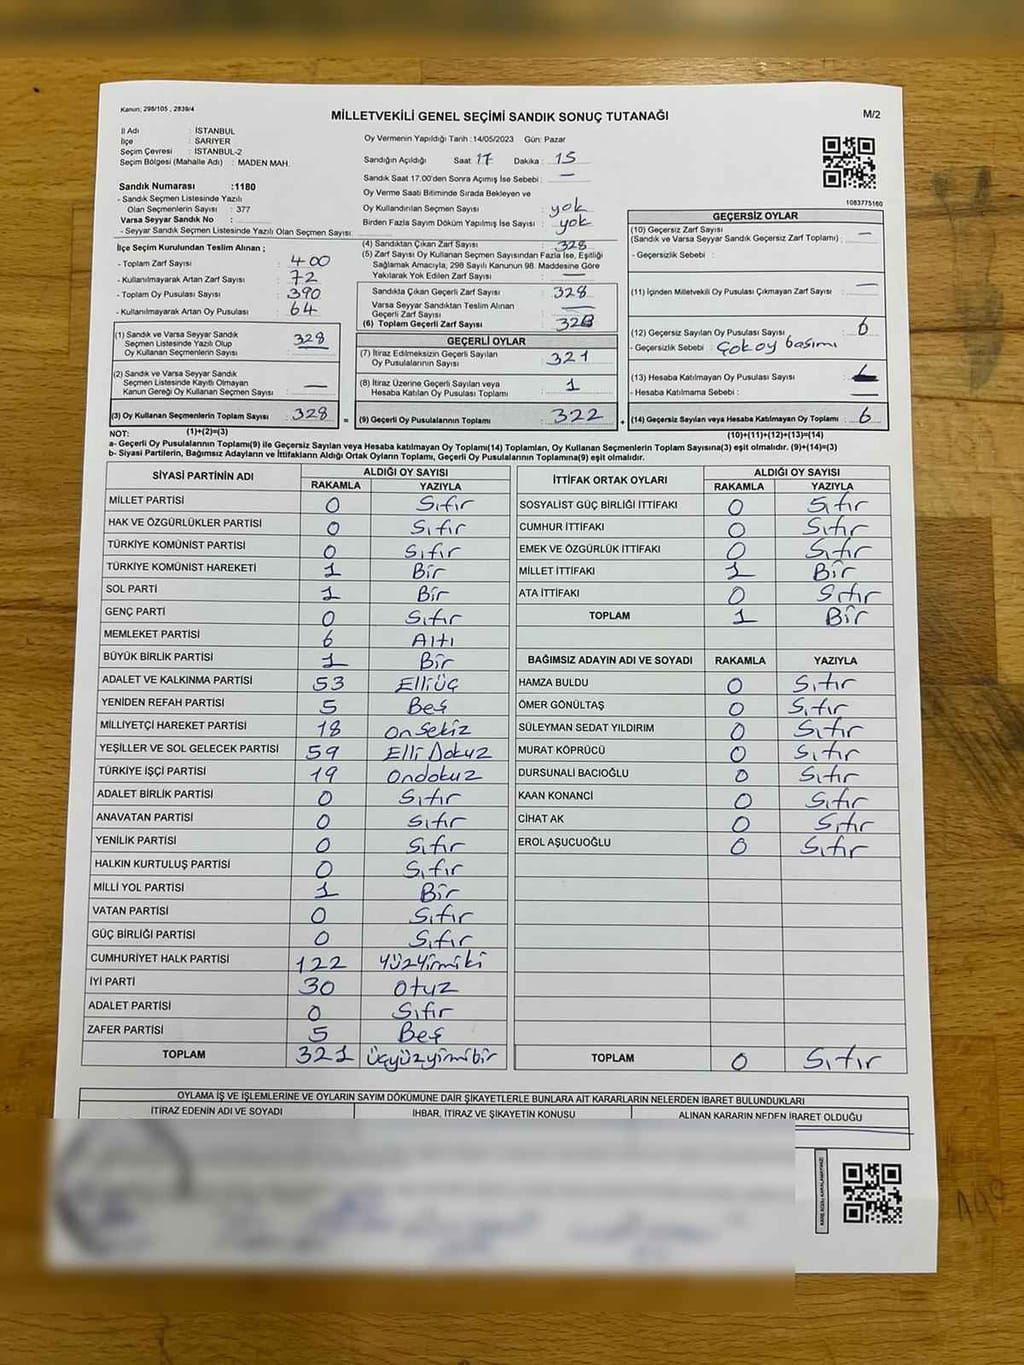 Kanun; 298/105 , 2839/4
MİLLETVEKİLİ GENEL SEÇİMİ SANDIK SONUÇ TUTANAĞI
M/2
İl Adı : İSTANBUL
İlçe : SARIYER
Seçim Çevresi : İSTANBUL-2
Seçim Bölgesi (Mahalle Adı) : MADEN MAH.
Oy Vermenin Yapıldığı Tarih :14/05/2023 Gün: Pazar
Sandığın Açıldığı Saat 17 Dakika : 15
Sandık Saat 17.00'den Sonra Açımış İse Sebebi : —
Oy Verme Saati Bitiminde Sırada Bekleyen ve
Oy Kullandırılan Seçmen Sayısı : yok
Birden Fazla Sayım Döküm Yapılmış İse Sayısı : yok
Sandık Numarası :1180
- Sandık Seçmen Listesinde Yazılı
Olan Seçmenlerin Sayısı : 377
Varsa Seyyar Sandık No :
- Seyyar Sandık Seçmen Listesinde Yazılı Olan Seçmen Sayısı:
1083775160
İlçe Seçim Kurulundan Teslim Alınan ;
- Toplam Zarf Sayısı : 400
- Kullanılmayarak Artan Zarf Sayısı : 72
- Toplam Oy Pusulası Sayısı : 390
- Kullanılmayarak Artan Oy Pusulası : 64
(1) Sandık ve Varsa Seyyar Sandık
Seçmen Listesinde Yazılı Olup
Oy Kullanan Seçmenlerin Sayısı : 328
(2) Sandık ve Varsa Seyyar Sandık
Seçmen Listesinde Kayıtlı Olmayan
Kanun Gereği Oy Kullanan Seçmen Sayısı : —
(3) Oy Kullanan Seçmenlerin Toplam Sayısı : 328
(1)+(2)=(3)
(4) Sandıktan Çıkan Zarf Sayısı : 328
(5) Zarf Sayısı Oy Kullanan Seçmen Sayısından Fazla İse, Eşitliği
Sağlamak Amacıyla, 298 Sayılı Kanunun 98. Maddesine Göre
Yakılarak Yok Edilen Zarf Sayısı : —
Sandıkta Çıkan Geçerli Zarf Sayısı : 328
Varsa Seyyar Sandıktan Teslim Alınan
Geçerli Zarf Sayısı : —
(6) Toplam Geçerli Zarf Sayısı : 328
GEÇERLİ OYLAR
(7) İtiraz Edilmeksizin Geçerli Sayılan
Oy Pusulalarının Sayısı : 321
(8) İtiraz Üzerine Geçerli Sayılan veya
Hesaba Katılan Oy Pusulası Toplamı : 1
= (9) Geçerli Oy Pusulalarının Toplamı : 322
GEÇERSİZ OYLAR
(10) Geçersiz Zarf Sayısı
(Sandık ve Varsa Seyyar Sandık Geçersiz Zarf Toplamı) : —
- Geçersizlik Sebebi :
(11) İçinden Milletvekili Oy Pusulası Çıkmayan Zarf Sayısı : —
(12) Geçersiz Sayılan Oy Pusulası Sayısı : 6
- Geçersizlik Sebebi : Çok oy basımı
(13) Hesaba Katılmayan Oy Pusulası Sayısı :
- Hesaba Katılmama Sebebi : —
+ (14) Geçersiz Sayılan veya Hesaba Katılmayan Oy Toplamı : 6
(10)+(11)+(12)+(13)=(14)
NOT:
a- Geçerli Oy Pusulalarının Toplamı(9) ile Geçersiz Sayılan veya Hesaba katılmayan Oy Toplamı(14) Toplamları, Oy Kullanan Seçmenlerin Toplam Sayısına(3) eşit olmalıdır. (9)+(14)=(3)
b- Siyasi Partilerin, Bağımsız Adayların ve İttifakların Aldığı Ortak Oyların Toplamı, Geçerli Oy Pusulalarının Toplamına(9) eşit olmalıdır.
SİYASİ PARTİNİN ADI ALDIĞI OY SAYISI
RAKAMLA YAZIYLA
MİLLET PARTİSİ 0 Sıfır
HAK VE ÖZGÜRLÜKLER PARTİSİ 0 Sıfır
TÜRKİYE KOMÜNİST PARTİSİ 0 Sıfır
TÜRKİYE KOMÜNİST HAREKETİ 1 Bir
SOL PARTİ 1 Bir
GENÇ PARTİ 0 Sıfır
MEMLEKET PARTİSİ 6 Altı
BÜYÜK BİRLİK PARTİSİ 1 Bir
ADALET VE KALKINMA PARTİSİ 53 Elliüç
YENİDEN REFAH PARTİSİ 5 Beş
MİLLİYETÇİ HAREKET PARTİSİ 18 onsekiz
YEŞİLLER VE SOL GELECEK PARTİSİ 59 Elli Dokuz
TÜRKİYE İŞÇİ PARTİSİ 19 Ondokuz
ADALET BİRLİK PARTİSİ 0 Sıfır
ANAVATAN PARTİSİ 0 Sıfır
YENİLİK PARTİSİ 0 Sıfır
HALKIN KURTULUŞ PARTİSİ 0 Sıfır
MİLLİ YOL PARTİSİ 1 Bir
VATAN PARTİSİ 0 Sıfır
GÜÇ BİRLİĞİ PARTİSİ 0 Sıfır
CUMHURİYET HALK PARTİSİ 122 Yüzyirmiiki
İYİ PARTİ 30 Otuz
ADALET PARTİSİ 0 Sıfır
ZAFER PARTİSİ 5 Beş
TOPLAM 321 üçyüzyirmibir
İTTİFAK ORTAK OYLARI ALDIĞI OY SAYISI
RAKAMLA YAZIYLA
SOSYALİST GÜÇ BİRLİĞİ İTTİFAKI 0 Sıfır
CUMHUR İTTİFAKI 0 Sıfır
EMEK VE ÖZGÜRLÜK İTTİFAKI 0 Sıfır
MİLLET İTTİFAKI 1 Bir
ATA İTTİFAKI 0 Sıfır
TOPLAM 1 Bir
BAĞIMSIZ ADAYIN ADI VE SOYADI RAKAMLA YAZIYLA
HAMZA BULDU 0 Sıfır
ÖMER GÖNÜLTAŞ 0 Sıfır
SÜLEYMAN SEDAT YILDIRIM 0 Sıfır
MURAT KÖPRÜCÜ 0 Sıfır
DURSUNALİ BACIOĞLU 0 Sıfır
KAAN KONANCİ 0 Sıfır
CİHAT AK 0 Sıfır
EROL AŞUCUOĞLU 0 Sıfır
TOPLAM 0 Sıfır
OYLAMA İŞ VE İŞLEMLERİNE VE OYLARIN SAYIM DÖKÜMÜNE DAİR ŞİKAYETLERLE BUNLARA AİT KARARLARIN NELERDEN İBARET BULUNDUKLARI
İTİRAZ EDENİN ADI VE SOYADI İHBAR, İTİRAZ VE ŞİKAYETİN KONUSU ALINAN KARARIN NEDEN İBARET OLDUĞU
KARE KODU KARALAMAYINIZ!